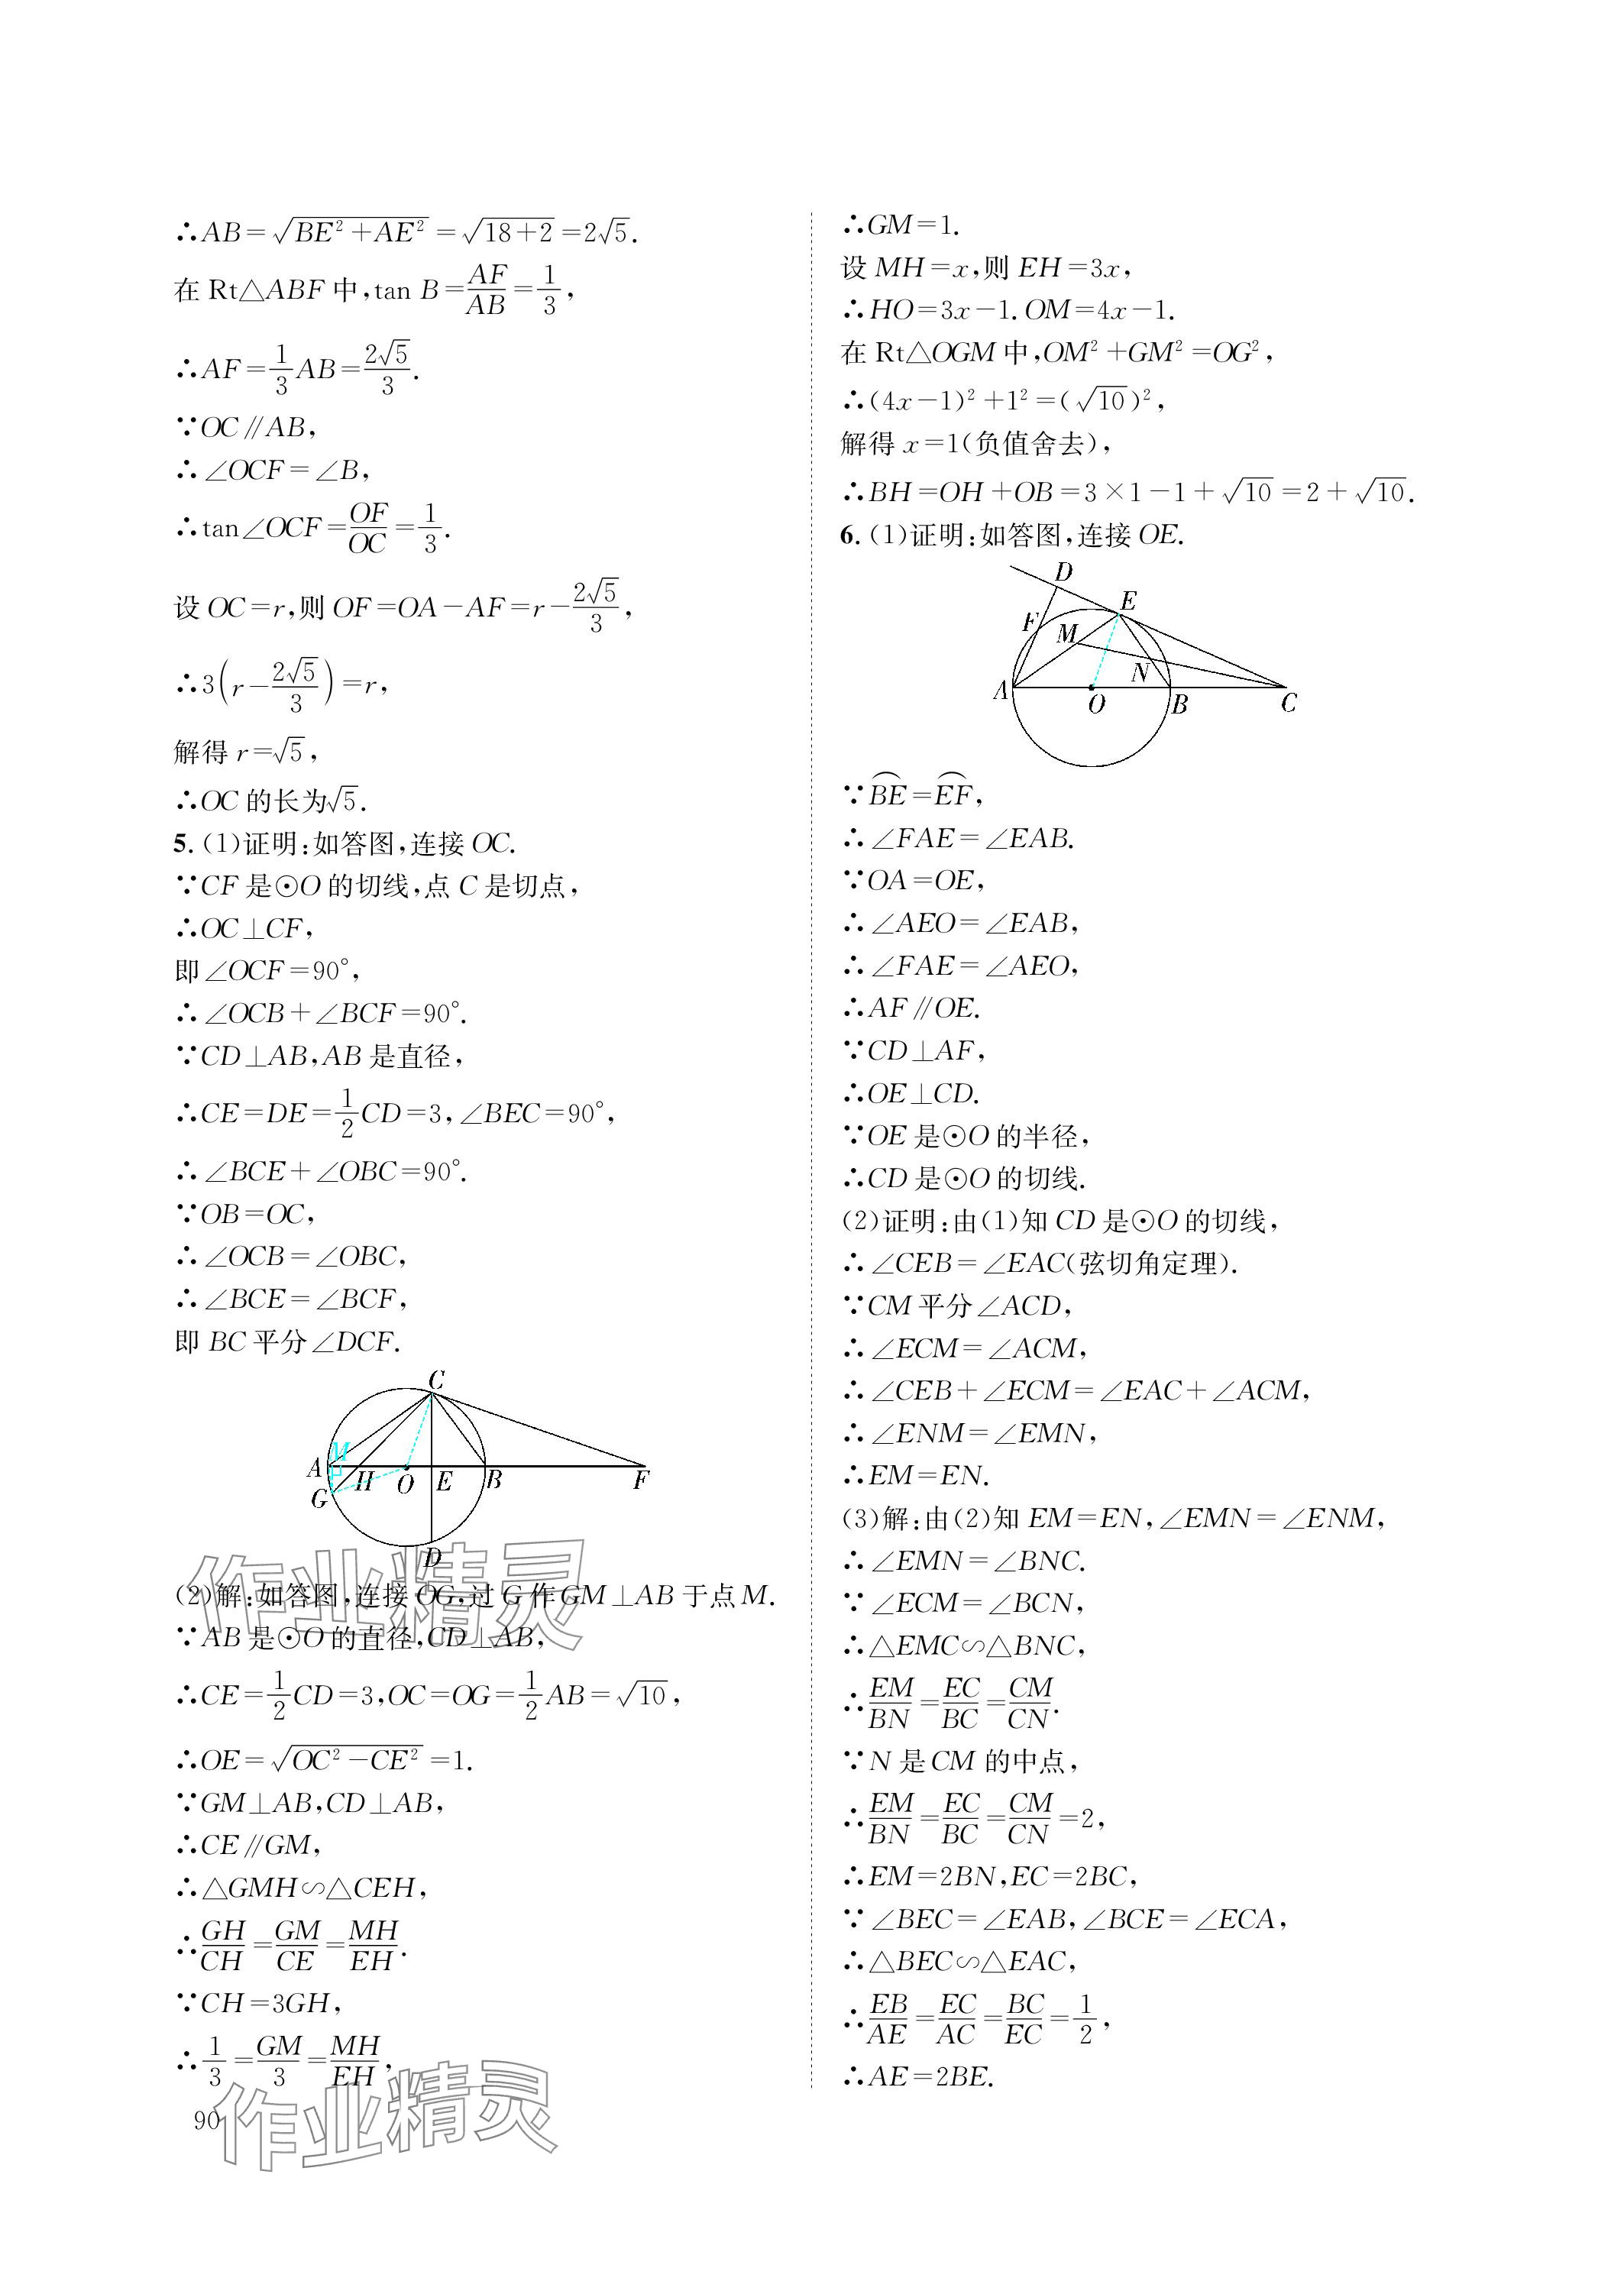 ∴AB=√(BE²+AE²)=√(18+2)=2√5.
在 Rt△ABF 中,tan B=AF/AB=1/3,
∴AF=1/3AB=2√5/3.
∵OC∥AB,
∴∠OCF=∠B,
∴tan∠OCF=OF/OC=1/3.
设 OC=r,则 OF=OA-AF=r-2√5/3,
∴3(r-2√5/3)=r,
解得 r=√5,
∴OC 的长为√5.
5.(1)证明:如答图,连接 OC.
∵CF 是⊙O 的切线,点 C 是切点,
∴OC⊥CF,
即∠OCF=90°,
∴∠OCB+∠BCF=90°.
∵CD⊥AB,AB 是直径,
∴CE=DE=1/2CD=3,∠BEC=90°,
∴∠BCE+∠OBC=90°.
∵OB=OC,
∴∠OCB=∠OBC,
∴∠BCE=∠BCF,
即 BC 平分∠DCF.
C
M
A H O E B F
G
D
(2)解:如答图,连接 OG,过 G 作 GM⊥AB 于点 M.
∵AB 是⊙O 的直径,CD⊥AB,
∴CE=1/2CD=3,OC=OG=1/2AB=√10,
∴OE=√(OC²-CE²)=1.
∵GM⊥AB,CD⊥AB,
∴CE∥GM,
∴△GMH∽△CEH,
∴GH/CH=GM/CE=MH/EH.
∵CH=3GH,
∴1/3=GM/3=MH/EH,
90
作业精灵
作业精灵
∴GM=1.
设 MH=x,则 EH=3x,
∴HO=3x-1.OM=4x-1.
在 Rt△OGM 中,OM²+GM²=OG²,
∴(4x-1)²+1²=(√10)²,
解得 x=1(负值舍去),
∴BH=OH+OB=3×1-1+√10=2+√10.
6.(1)证明:如答图,连接 OE.
D
E
F
M
N
A O B C
∵⌒BE=⌒EF,
∴∠FAE=∠EAB.
∵OA=OE,
∴∠AEO=∠EAB,
∴∠FAE=∠AEO,
∴AF∥OE.
∵CD⊥AF,
∴OE⊥CD.
∵OE 是⊙O 的半径,
∴CD 是⊙O 的切线.
(2)证明:由(1)知 CD 是⊙O 的切线,
∴∠CEB=∠EAC(弦切角定理).
∵CM 平分∠ACD,
∴∠ECM=∠ACM,
∴∠CEB+∠ECM=∠EAC+∠ACM,
∴∠ENM=∠EMN,
∴EM=EN.
(3)解:由(2)知 EM=EN,∠EMN=∠ENM,
∴∠EMN=∠BNC.
∵∠ECM=∠BCN,
∴△EMC∽△BNC,
∴EM/BN=EC/BC=CM/CN.
∵N 是 CM 的中点,
∴EM/BN=EC/BC=CM/CN=2,
∴EM=2BN,EC=2BC,
∵∠BEC=∠EAB,∠BCE=∠ECA,
∴△BEC∽△EAC,
∴EB/AE=EC/AC=BC/EC=1/2,
∴AE=2BE.